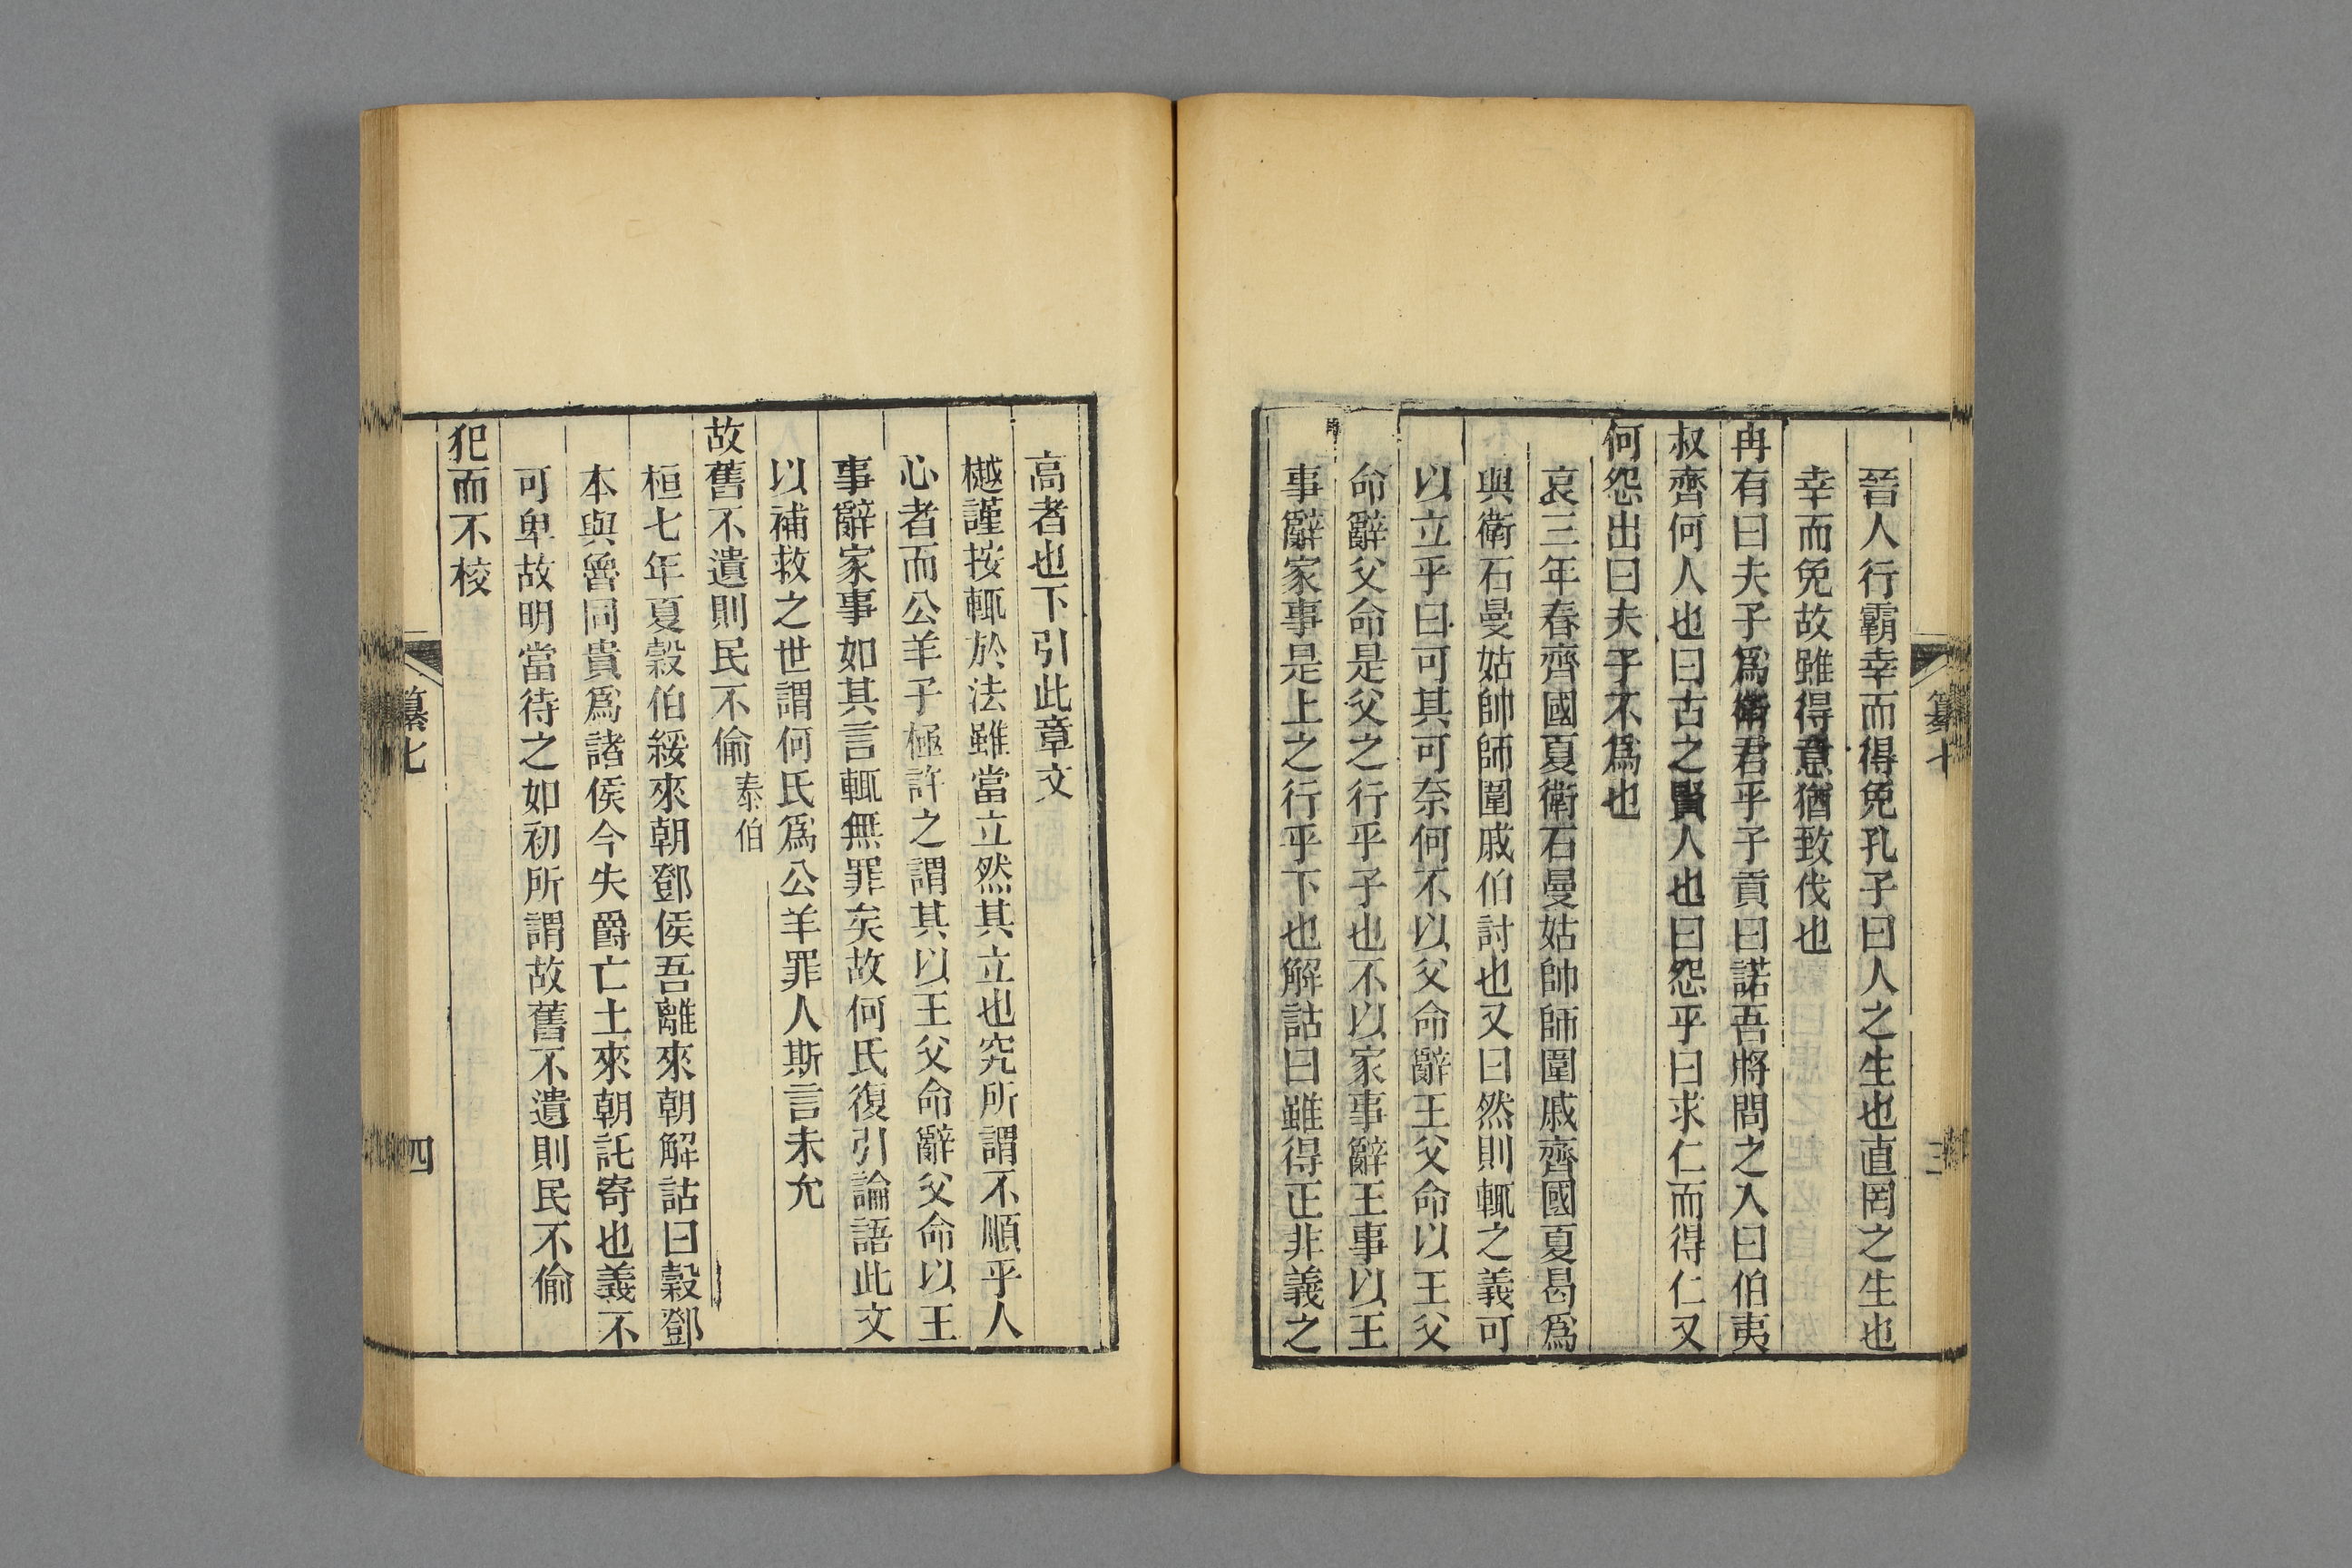 晉人行霸幸而得免孔子曰人之生也直罔之生也
幸而免故雖得意猶致伐也
冉有曰夫子爲衛君乎子貢曰諾吾將問之入曰伯夷
叔齊何人也曰古之賢人也曰怨乎曰求仁而得仁又
何怨出曰夫子不爲也
哀三年春齊國夏衛石曼姑帥師圍戚齊國夏曷爲
與衛石曼姑帥師圍戚伯討也又曰然則輒之義可
以立乎曰可其可奈何不以父命辭王父命以王父
命辭父命是父之行乎子也不以家事辭王事以王
事辭家事是上之行乎下也解詁曰雖得正非義之
三
高者也下引此章文
樾謹按輒於法雖當立然其立也究所謂不順乎人
心者而公羊子極許之謂其以王父命辭父命以王
事辭家事如其言輒無罪矣故何氏復引論語此文
以補救之世謂何氏爲公羊罪人斯言未允
故舊不遺則民不偷泰伯
桓七年夏穀伯綏來朝鄧侯吾離來朝解詁曰穀鄧
本與魯同貴爲諸侯今失爵亡土來朝託寄也義不
可卑故明當待之如初所謂故舊不遺則民不偷
犯而不校
纂七
四